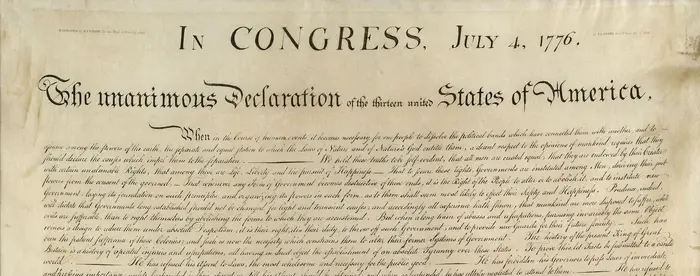 IN CONGRESS, JULY 4, 1776.
The unanimous Declaration of the thirteen united States of America,
When in the Course of human events, it becomes necessary for one people to dissolve the political bands which have connected them with another, and to
assume among the powers of the earth, the separate and equal station to which the Laws of Nature and of Nature's God entitle them, a decent respect to the opinions of mankind requires that they
should declare the causes which impel them to the separation. We hold these truths to be self-evident, that all men are created equal, that they are endowed by their Creator
with certain unalienable Rights, that among these are Life, Liberty and the pursuit of Happiness.— That to secure these rights, Governments are instituted among Men, deriving their just
powers from the consent of the governed,— That whenever any Form of Government becomes destructive of these ends, it is the Right of the People to alter or to abolish it, and to institute new
Government, laying its foundation on such principles and organizing its powers in such form, as to them shall seem most likely to effect their Safety and Happiness. Prudence, indeed,
will dictate that Governments long established should not be changed for light and transient causes; and accordingly all experience hath shewn, that mankind are more disposed to suffer, while
evils are sufferable, than to right themselves by abolishing the forms to which they are accustomed. But when a long train of abuses and usurpations, pursuing invariably the same Object
evinces a design to reduce them under absolute Despotism, it is their right, it is their duty, to throw off such Government, and to provide new Guards for their future security.— Such has
been the patient sufferance of these Colonies; and such is now the necessity which constrains them to alter their former Systems of Government. The history of the present King of Great
Britain is a history of repeated injuries and usurpations, all having in direct object the establishment of an absolute Tyranny over these States. To prove this, let Facts be submitted to a candid
world. He has refused his Assent to Laws, the most wholesome and necessary for the public good. He has forbidden his Governors to pass Laws of immediate